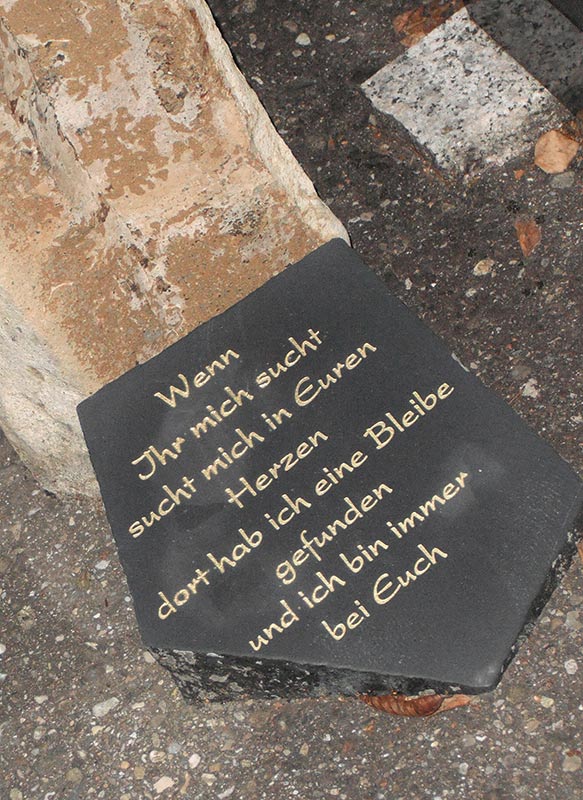 Wenn
Ihr mich sucht
sucht mich in Euren
Herzen
dort hab ich eine Bleibe
gefunden
und ich bin immer
bei Euch